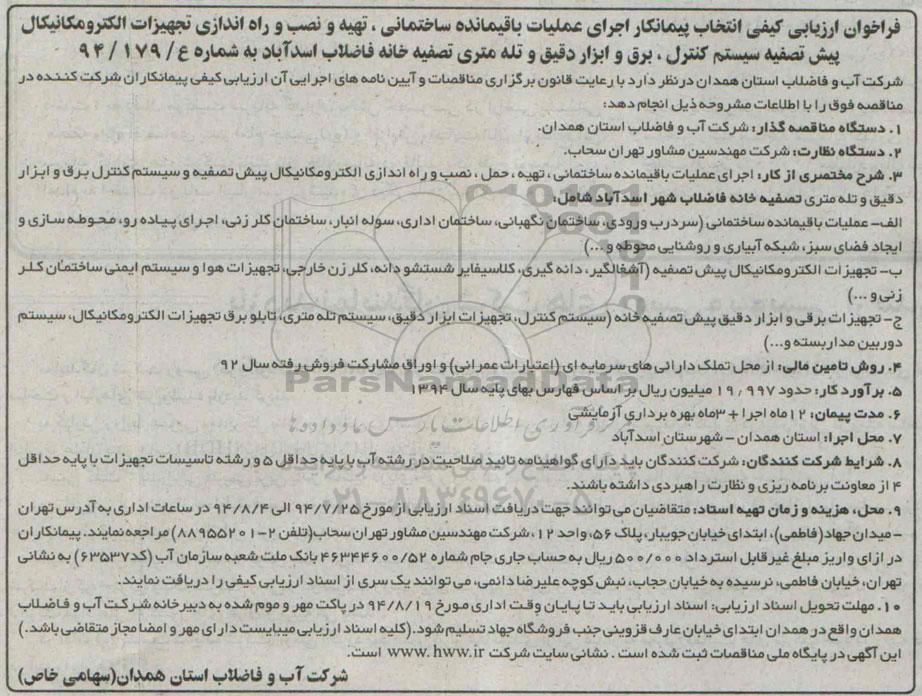 فراخوان ارزیابی کیفی انتخاب پیمانکار اجرای عملیات باقیمانده ساختمانی ، تهیه و نصب و راه اندازی تجهیزات الکترومکانیکال
پیش تصفیه سیستم کنترل ، برق و ابزار دقیق و تله متری تصفیه خانه فاضلاب اسدآباد به شماره ع/ ۹۴/۱۷۹
شرکت آب و فاضلاب استان همدان درنظر دارد با رعایت قانون برگزاری مناقصات و آیین نامه های اجرایی آن ارزیابی کیفی پیمانکاران شرکت کننده در
مناقصه فوق را با اطلاعات مشروحه ذیل انجام دهد:
۱. دستگاه مناقصه گذار: شرکت آب و فاضلاب استان همدان.
۲. دستگاه نظارت: شرکت مهندسین مشاور تهران سحاب.
۳. شرح مختصری از کار: اجرای عملیات باقیمانده ساختمانی ، تهیه ، حمل ، نصب و راه اندازی الکترومکانیکال پیش تصفیه و سیستم کنترل برق و ابزار
دقیق و تله متری تصفیه خانه فاضلاب شهر اسدآباد شامل:
الف- عملیات باقیمانده ساختمانی (سردرب ورودی، ساختمان نگهبانی، ساختمان اداری، سوله انبار، ساختمان کلر زنی، اجرای پیاده رو، محوطه سازی و
ایجاد فضای سبز، شبکه آبیاری و روشنایی محوطه و...)
ب- تجهیزات الکترومکانیکال پیش تصفیه (آشغالگیر، دانه گیری، کلاسیفایر شستشو دانه، کلر زن خارجی، تجهیزات هوا و سیستم ایمنی ساختمان کلر
زنی و ...)
ج- تجهیزات برقی و ابزار دقیق پیش تصفیه خانه (سیستم کنترل، تجهیزات ابزار دقیق، سیستم تله متری، تابلو برق تجهیزات الکترومکانیکال، سیستم
دوربین مداربسته و...)
۴. روش تامین مالی: از محل تملک دارائی های سرمایه ای (اعتبارات عمرانی) و اوراق مشارکت فروش رفته سال ۹۲
۵. برآورد کار: حدود ۱۹,۹۹۷ میلیون ریال بر اساس فهارس بهای پایه سال ۱۳۹۴
۶. مدت پیمان: ۱۲ماه اجرا + ۳ماه بهره برداری آزمایشی
۷. محل اجرا: استان همدان - شهرستان اسدآباد
۸. شرایط شرکت کنندگان: شرکت کنندگان باید دارای گواهینامه تائید صلاحیت در رشته آب با پایه حداقل ۵ و رشته تاسیسات تجهیزات با پایه حداقل
۴ از معاونت برنامه ریزی و نظارت راهبردی داشته باشند.
۹. محل، هزینه و زمان تهیه اسناد: متقاضیان می توانند جهت دریافت اسناد ارزیابی از مورخ ۹۴/۷/۲۵ الی ۹۴/۸/۴ در ساعات اداری به آدرس تهران
- میدان جهاد (فاطمی)، ابتدای خیابان جویبار، پلاک ۵۶، واحد ۱۲، شرکت مهندسین مشاور تهران سحاب(تلفن ۲-۸۸۹۵۵۲۰۱) مراجعه نمایند. پیمانکاران
در ازای واریز مبلغ غیر قابل استرداد ۵۰۰/۰۰۰ ریال به حساب جاری جام شماره ۴۶۳۴۴۶۰۰/۵۲ بانک ملت شعبه سازمان آب (کد۶۳۵۳۷) به نشانی
تهران، خیابان فاطمی، نرسیده به خیابان حجاب، نبش کوچه علیرضا دائمی، می توانند یک سری از اسناد ارزیابی کیفی را دریافت نمایند.
۱۰. مهلت تحویل اسناد ارزیابی: اسناد ارزیابی باید تا پایان وقت اداری مورخ ۹۴/۸/۱۹ در پاکت مهر و موم شده به دبیرخانه شرکت آب و فاضلاب
همدان واقع در همدان ابتدای خیابان عارف قزوینی جنب فروشگاه جهاد تسلیم شود. (کلیه اسناد ارزیابی میبایست دارای مهر و امضا مجاز متقاضی باشد.)
این آگهی در پایگاه ملی مناقصات ثبت شده است . نشانی سایت شرکت www.hww.ir است.
شرکت آب و فاضلاب استان همدان(سهامی خاص)
ParsNamadData
۰۲۱-۸۸۳۴۹۶۷۰-۵